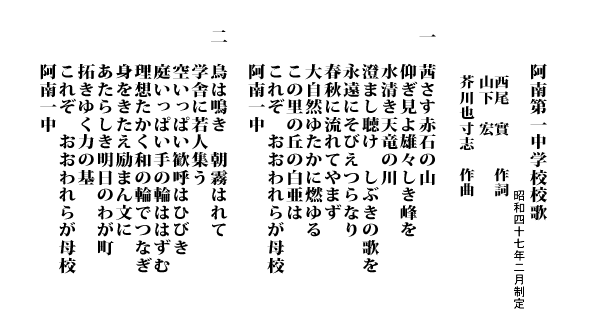 阿南第一中学校校歌
昭和四十七年二月制定
西尾 實 作詞
山下 宏
芥川也寸志 作曲
一 茜さす赤石の山
仰ぎ見よ雄々しき峰を
水清き天竜の川
澄まし聴け しぶきの歌を
永遠にそびえつらなり
春秋に流れてやまず
大自然ゆたかに燃ゆる
この里の丘の白亜は
これぞ おおわれらが母校
阿南一中
二 鳥は鳴き 朝霧はれて
学舎に若人集う
空いっぱい歓呼はひびき
庭いっぱい手の輪ははずむ
理想たかく和の輪でつなぎ
身をきたえ励まん文に
あたらしき明日のわが町
拓きゆく力の基
これぞ おおわれらが母校
阿南一中